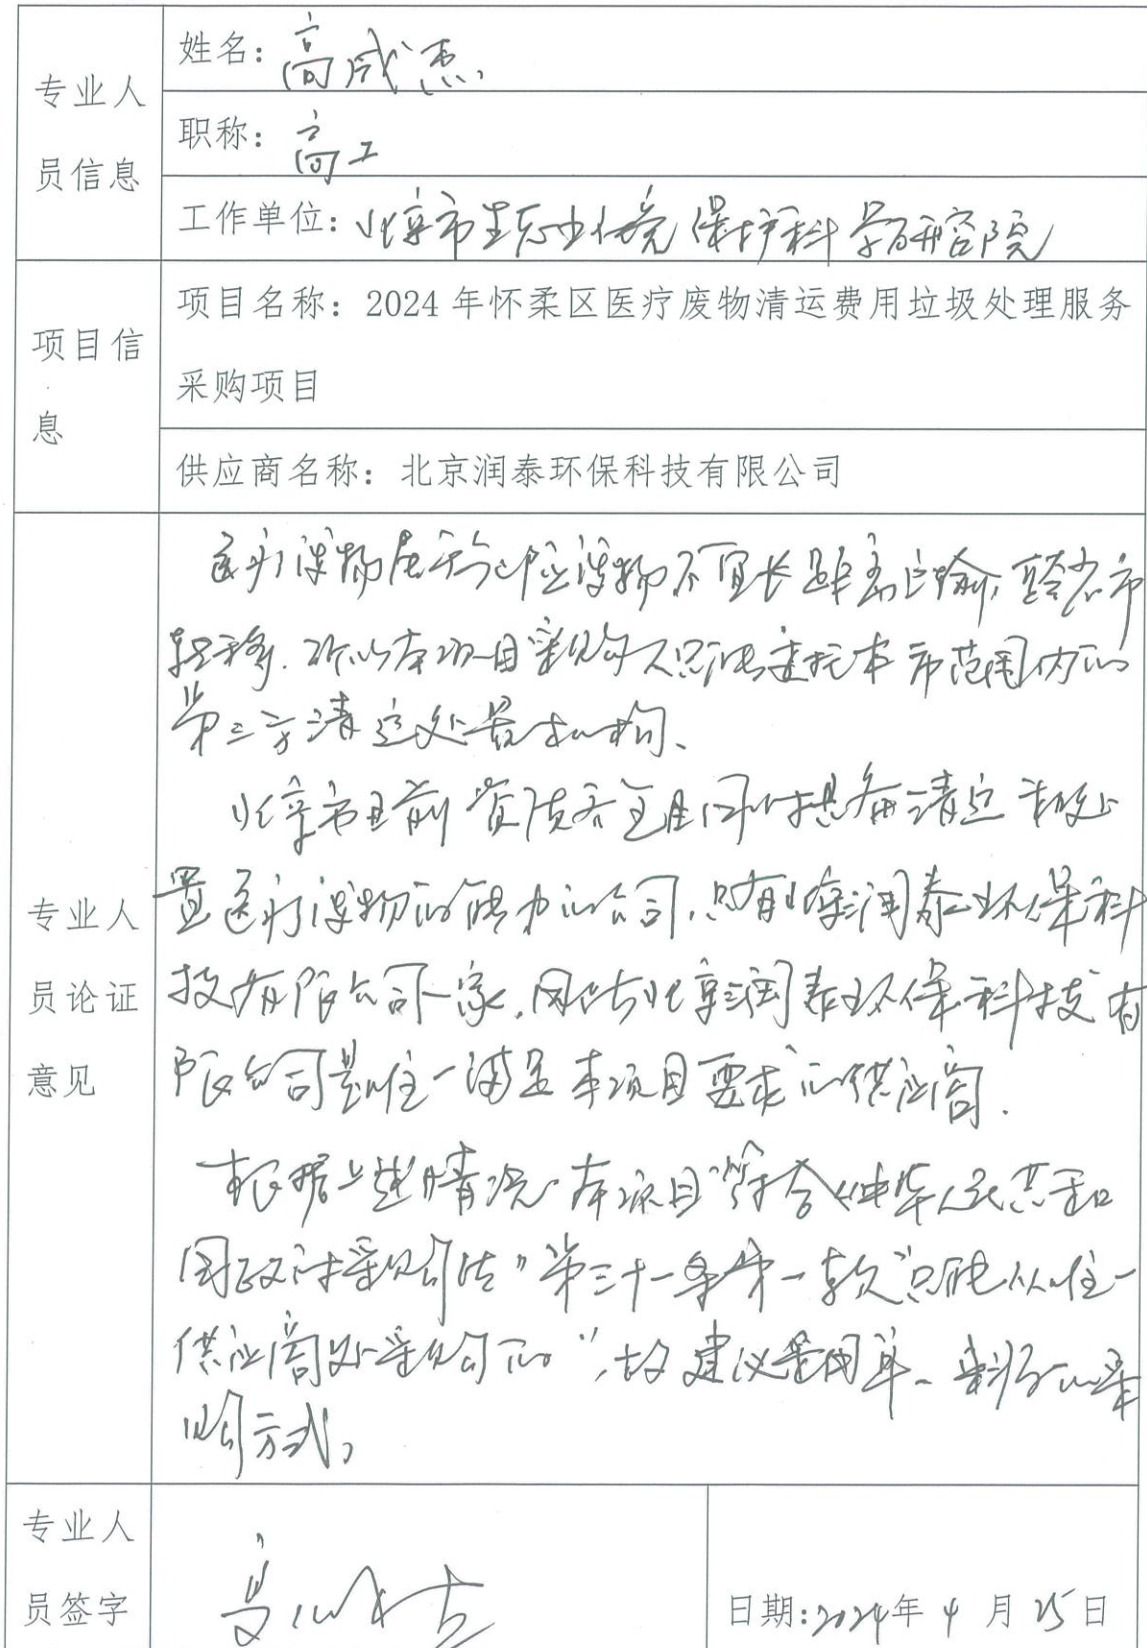 专业人员信息
姓名：高成杰
职称：高工
工作单位：北京市生态环境保护科学研究院
项目信息
项目名称：2024年怀柔区医疗废物清运费用垃圾处理服务
采购项目
供应商名称：北京润泰环保科技有限公司
专业人员论证意见
医疗废物属于危险废物不宜长距离运输,跨省市
转移.所以本项目采购人只能委托本市范围内的
第三方清运处置机构、
北京市目前资质齐全且同时具备清运和处
置医疗废物的能力的公司,只有北京润泰环保科
技有限公司一家,因此北京润泰环保科技有
限公司是唯一满足本项目要求的供应商.
根据上述情况,本项目符合《中华人民共和
国政府采购法》第三十一条第一款“只能从唯一
供应商处采购的”,故建议采用单一来源的采
购方式。
专业人员签字
日期:2024年4月25日